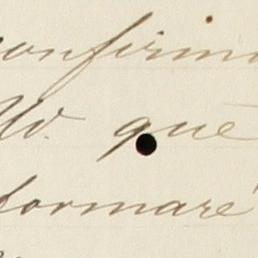 confirm
W. que
formaré